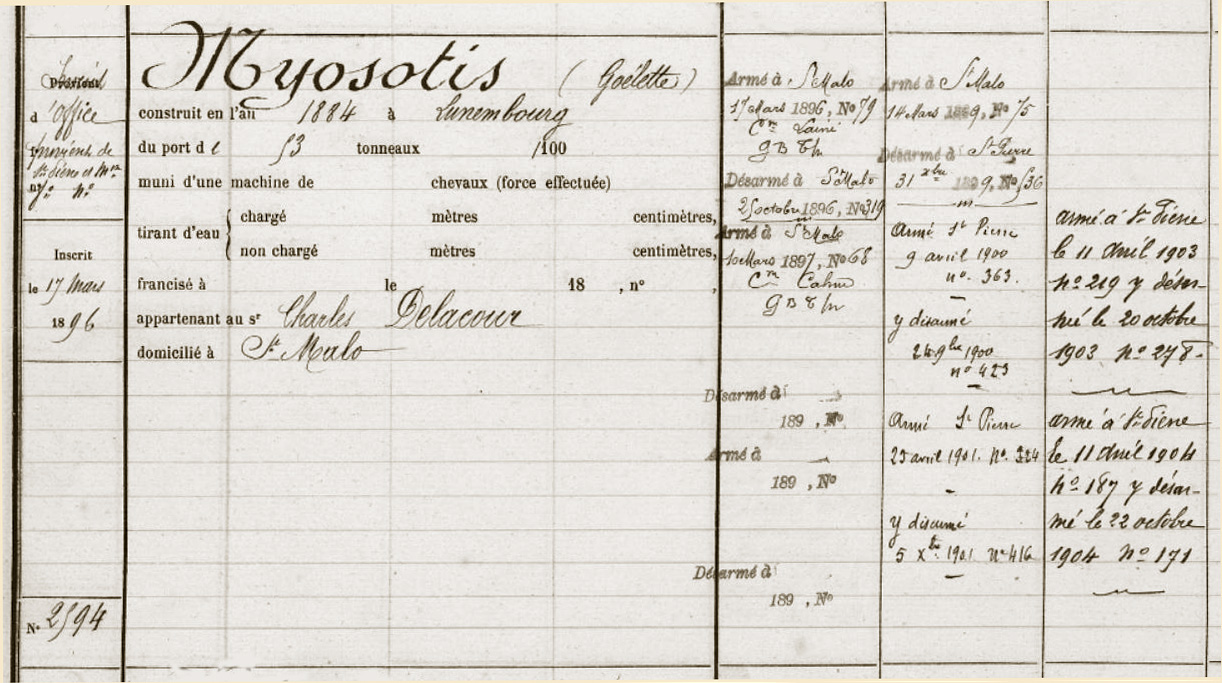 d'office
Inscrit
le 17 Mars
1896
No 2594
Myosotis (Goëlette)
construit en l'an 1884 à Lunembourg
du port de 53 tonneaux /100
muni d'une machine de chevaux (force effectuée)
tirant d'eau { chargé mètres centimètres,
non chargé mètres centimètres,
francisé à le 18 , n° ,
appartenant au sr Charles Delacour
domicilié à St Malo
Armé à St Malo
17 Mars 1896, No 79
Cne Lainé
G B T/n
Désarmé à St Malo
25 octobre 1896, No 319
Armé à St Malo
10 Mars 1897, No 68
Cne
G B T/n
Désarmé à
189 , No
Armé à
189 , No
Désarmé à
189 , No
Armé à St Malo
14 Mars 1899, No 75
Désarmé à St Pierre
31 xbre 1899, No 536
Armé St Pierre
9 avril 1900
no. 363.
y désarmé
24 9bre 1900
no 423
Armé St Pierre
25 avril 1901. No. 324
y désarmé
5 Xbre 1901 No 416
armé à St Pierre
le 11 Avril 1903
no 219 y désar-
mé le 20 octobre
1903 no 278-
armé à St Pierre
le 11 Avril 1904
no 187 y désar-
mé le 22 octobre
1904 no 171